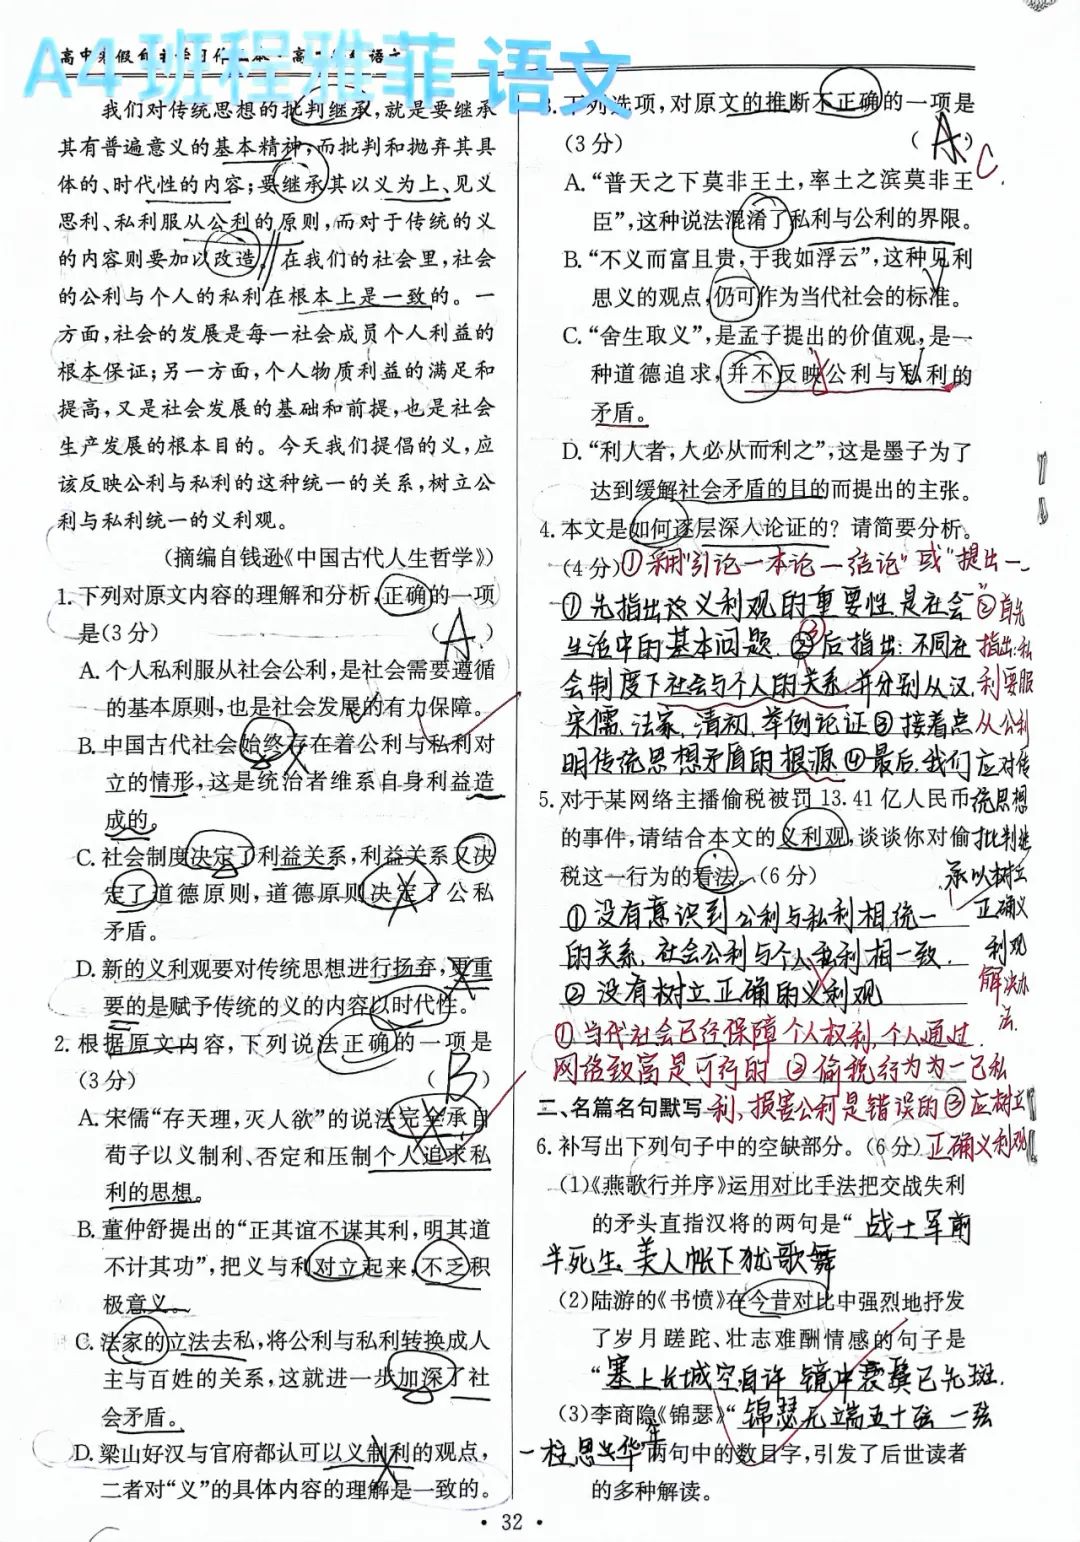 A4班程雅菲 语文
我们对传统思想的批判继承,就是要继承
其有普遍意义的基本精神,而批判和抛弃其具
体的、时代性的内容;要继承其以义为上、见义
思利、私利服从公利的原则,而对于传统的义
的内容则要加以改造。在我们的社会里,社会
的公利与个人的私利在根本上是一致的。一
方面,社会的发展是每一社会成员个人利益的
根本保证;另一方面,个人物质利益的满足和
提高,又是社会发展的基础和前提,也是社会
生产发展的根本目的。今天我们提倡的义,应
该反映公利与私利的这种统一的关系,树立公
利与私利统一的义利观。
(摘编自钱逊《中国古代人生哲学》)
1.下列对原文内容的理解和分析,正确的一项
是(3分) (A)
A.个人私利服从社会公利,是社会需要遵循
的基本原则,也是社会发展的有力保障。
B.中国古代社会始终存在着公利与私利对
立的情形,这是统治者维系自身利益造
成的。
C.社会制度决定了利益关系,利益关系又决
定了道德原则,道德原则决定了公私
矛盾。
D.新的义利观要对传统思想进行扬弃,更重
要的是赋予传统的义的内容以时代性。
2.根据原文内容,下列说法正确的一项是
(3分) (B)
A.宋儒“存天理,灭人欲”的说法完全承自
荀子以义制利、否定和压制个人追求私
利的思想。
B.董仲舒提出的“正其谊不谋其利,明其道
不计其功”,把义与利对立起来,不乏积
极意义。
C.法家的立法去私,将公利与私利转换成人
主与百姓的关系,这就进一步加深了社
会矛盾。
D.梁山好汉与官府都认可以义制利的观点,
二者对“义”的具体内容的理解是一致的。
3.下列选项,对原文的推断不正确的一项是
(3分) (A) C
A.“普天之下莫非王土,率土之滨莫非王
臣”,这种说法混淆了私利与公利的界限。
B.“不义而富且贵,于我如浮云”,这种见利
思义的观点,仍可作为当代社会的标准。
C.“舍生取义”,是孟子提出的价值观,是一
种道德追求,并不反映公利与私利的
矛盾。
D.“利人者,人必从而利之”,这是墨子为了
达到缓解社会矛盾的目的而提出的主张。
4.本文是如何逐层深入论证的?请简要分析。
(4分)①采用“引论一本论一结论”或“提出一
①先指出这义利观的重要性是社会
生活中的基本问题.②后指出:不同在
会制度下社会与个人的关系,并分别从汉.
宋儒.法家.清初.举例论证③接着点
明传统思想矛盾的根源④最后.我们
②首先
指出:私
利要服
从公利
应对传
统思想
批判继
承以树立
正确义
利观
解决办
法.
5.对于某网络主播偷税被罚13.41亿人民币
的事件,请结合本文的义利观,谈谈你对偷
税这一行为的看法。(6分)
①没有意识到公利与私利相统一
的关系,社会公利与个人私利相一致.
②没有树立正确的义利观
①当代社会已经保障个人权利,个人通过
网络致富是可行的②偷税行为为一己私
利,损害公利是错误的③应树立
正确义利观
二、名篇名句默写
6.补写出下列句子中的空缺部分。(6分)
(1)《燕歌行并序》运用对比手法把交战失利
的矛头直指汉将的两句是“战士军前
半死生,美人帐下犹歌舞
(2)陆游的《书愤》在今昔对比中强烈地抒发
了岁月蹉跎、壮志难酬情感的句子是
“塞上长城空自许 镜中衰鬓已先斑.
(3)李商隐《锦瑟》“锦瑟无端五十弦 一弦
一柱思华年两句中的数目字,引发了后世读者
的多种解读。
·32·